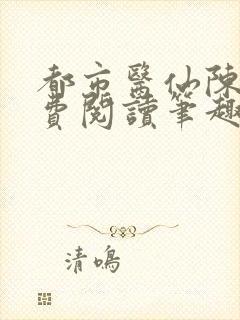 都市醫仙陳
費閱讀筆趣
清鳴